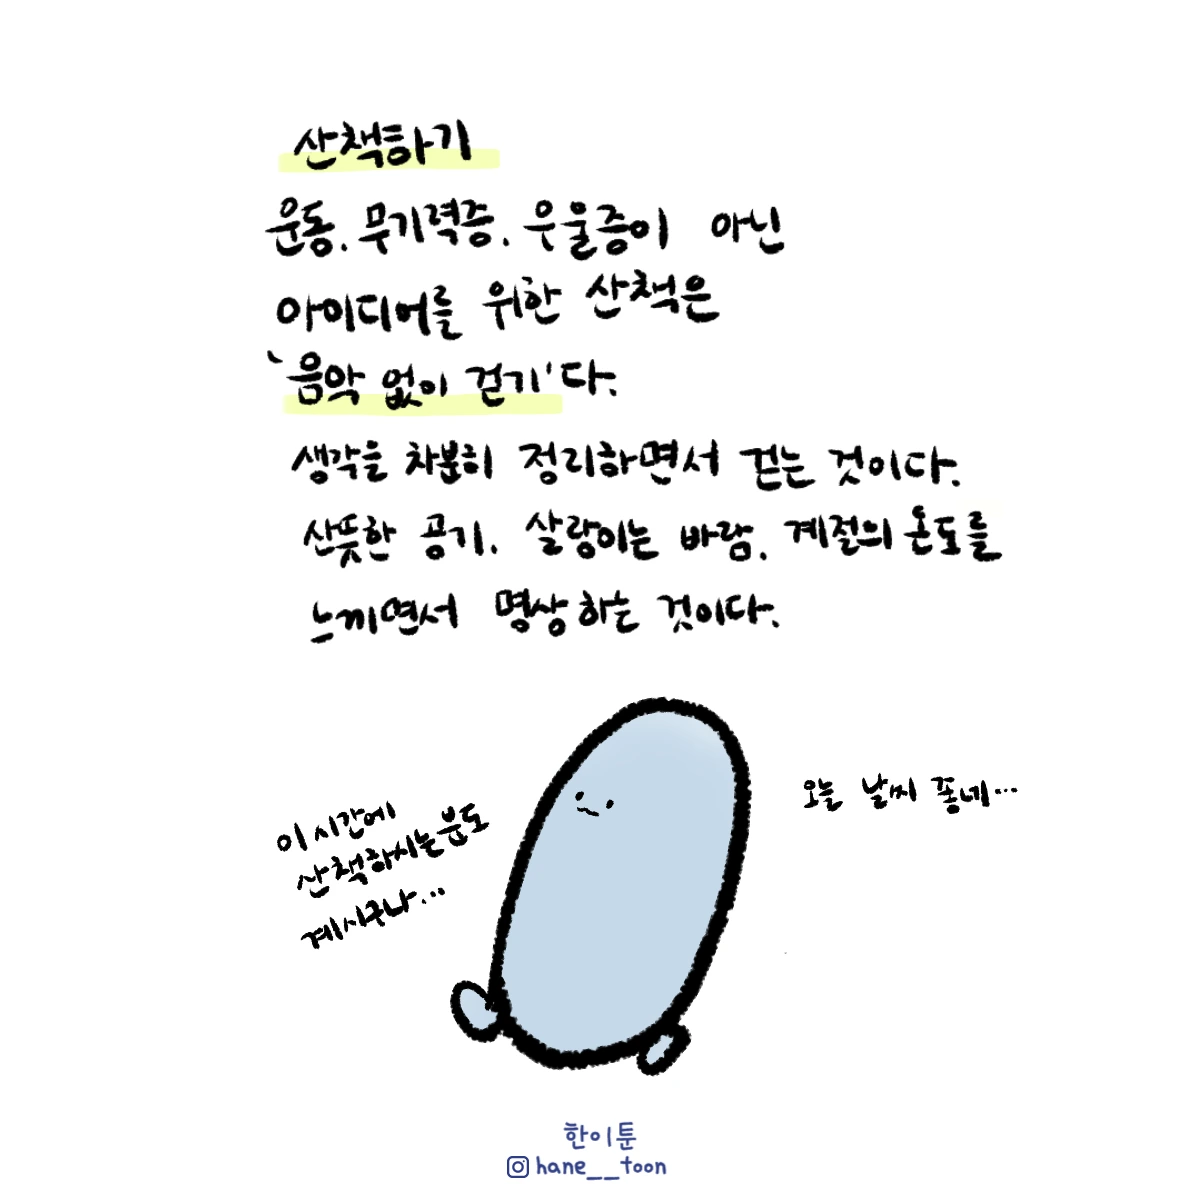 산책하기
운동, 무기력증, 우울증이 아닌
아이디어를 위한 산책은
'음악 없이 걷기'다.
생각을 차분히 정리하면서 걷는 것이다.
산뜻한 공기, 살랑이는 바람, 계절의 온도를
느끼면서 명상하는 것이다.
이 시간에
산책하시는 분도
계시구나...
오늘 날씨 좋네...
한이툰
hane__toon